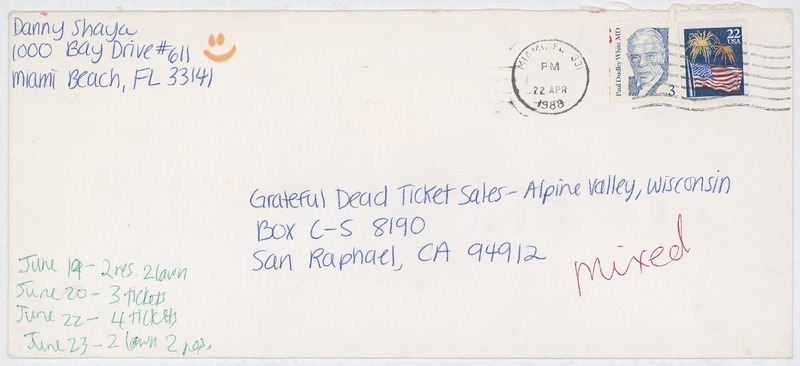 Danny Shaya
1000 Bay Drive #611
Miami Beach, FL 33141
MIAMI, FL 331
PM
22 APR
1988
Paul Dudley White MD
3
22
USA
Grateful Dead Ticket Sales - Alpine Valley, Wisconsin
Box C-S 8190
San Raphael, CA 94912
mixed
June 19 - 2 res. 2 lawn
June 20 - 3 tickets
June 22 - 4 tickets
June 23 - 2 lawn 2 res.